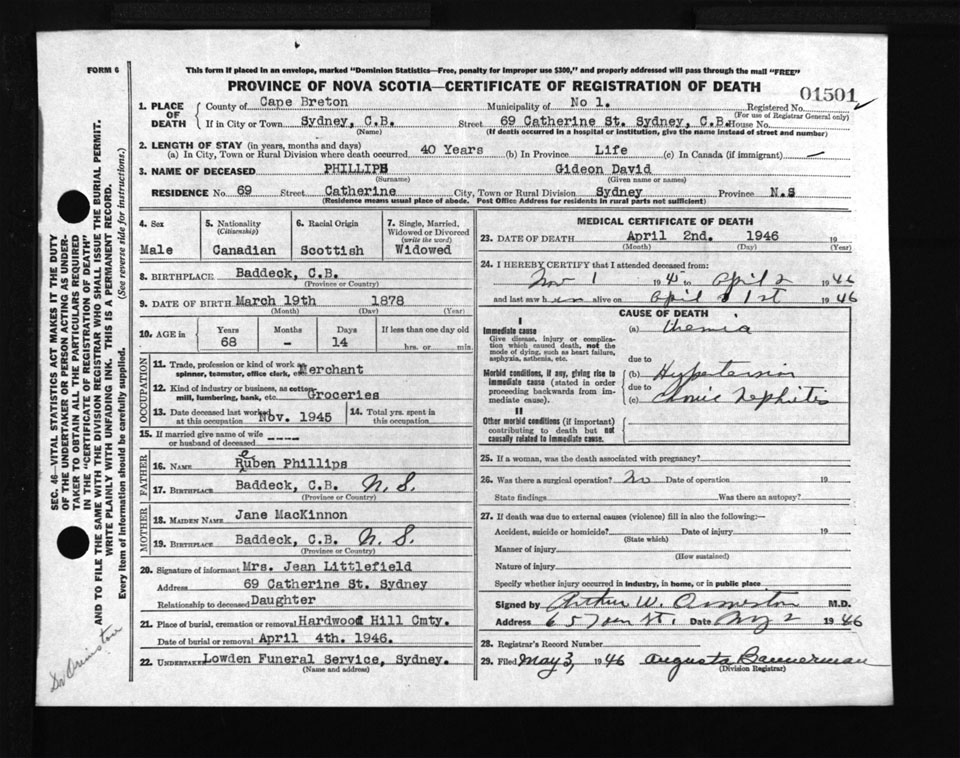 FORM 6
This form if placed in an envelope, marked "Dominion Statistics—Free, penalty for improper use $300," and properly addressed will pass through the mail "FREE"
PROVINCE OF NOVA SCOTIA—CERTIFICATE OF REGISTRATION OF DEATH
01501
1. PLACE OF DEATH County of Cape Breton Municipality of No 1. Registered No.
(For use of Registrar General only)
If in City or Town Sydney, C.B. Street 69 Catherine St. Sydney, C.B. House No.
(Name) (If death occurred in a hospital or institution, give the name instead of street and number)
2. LENGTH OF STAY (in years, months and days)
(a) In City, Town or Rural Division where death occurred 40 Years (b) In Province Life (c) In Canada (if immigrant) —
3. NAME OF DECEASED PHILLIPS Gideon David
(Surname) (Given name or names)
RESIDENCE No. 69 Street Catherine City, Town or Rural Division Sydney Province N.S
(Residence means usual place of abode. Post Office Address for residents in rural parts not sufficient)
4. Sex Male
5. Nationality (Citizenship) Canadian
6. Racial Origin Scottish
7. Single, Married, Widowed or Divorced (write the word) Widowed
8. BIRTHPLACE Baddeck, C.B.
(Province or Country)
9. DATE OF BIRTH March 19th 1878
(Month) (Day) (Year)
10. AGE in Years Months Days If less than one day old
68 - 14 hrs. or min.
OCCUPATION
11. Trade, profession or kind of work as spinner, teamster, office clerk, etc. Merchant
12. Kind of industry or business, as cotton-mill, lumbering, bank, etc. Groceries
13. Date deceased last worked at this occupation Nov. 1945 14. Total yrs. spent in this occupation
15. If married give name of wife or husband of deceased ----
FATHER
16. NAME Reuben Phillips
17. BIRTHPLACE Baddeck, C.B. N.S.
(Province or Country)
MOTHER
18. MAIDEN NAME Jane MacKinnon
19. BIRTHPLACE Baddeck, C.B. N.S.
(Province or Country)
20. Signature of informant Mrs. Jean Littlefield
Address 69 Catherine St. Sydney
Relationship to deceased Daughter
21. Place of burial, cremation or removal Hardwood Hill Cmty.
Date of burial or removal April 4th. 1946.
22. UNDERTAKER Lowden Funeral Service, Sydney.
(Name and address)
MEDICAL CERTIFICATE OF DEATH
23. DATE OF DEATH April 2nd. 1946 19
(Month) (Day) (Year)
24. I HEREBY CERTIFY that I attended deceased from:
Nov 1 1945 to April 2 1946
and last saw him alive on April 1st 1946
CAUSE OF DEATH
I
Immediate cause
Give disease, injury or complication which caused death, not the mode of dying, such as heart failure, asphyxia, asthenia, etc.
(a) Uremia
due to
Morbid conditions, if any, giving rise to immediate cause (stated in order proceeding backwards from immediate cause).
(b) Hypertension
due to
(c) Chronic Nephritis
II
Other morbid conditions (if important) contributing to death but not causally related to immediate cause.
25. If a woman, was the death associated with pregnancy?
26. Was there a surgical operation? No Date of operation 19
State findings Was there an autopsy?
27. If death was due to external causes (violence) fill in also the following:—
Accident, suicide or homicide? Date of injury 19
(State which)
Manner of injury
(How sustained)
Nature of injury
Specify whether injury occurred in industry, in home, or in public place
Signed by Arthur W. Ormiston M.D.
Address St. Date May 2 1946
28. Registrar's Record Number
29. Filed May 3, 1946 Augusta Bannerman
(Division Registrar)
SEC. 46—VITAL STATISTICS ACT MAKES IT THE DUTY
OF THE UNDERTAKER OR PERSON ACTING AS UNDER-
TAKER TO OBTAIN ALL THE PARTICULARS REQUIRED
IN THE "CERTIFICATE OF REGISTRATION OF DEATH"
AND TO FILE THE SAME WITH THE DIVISION REGISTRAR WHO SHALL ISSUE THE BURIAL PERMIT.
WRITE PLAINLY WITH UNFADING INK. THIS IS A PERMANENT RECORD.
Every item of information should be carefully supplied. (See reverse side for instructions.)
Dr Ormiston